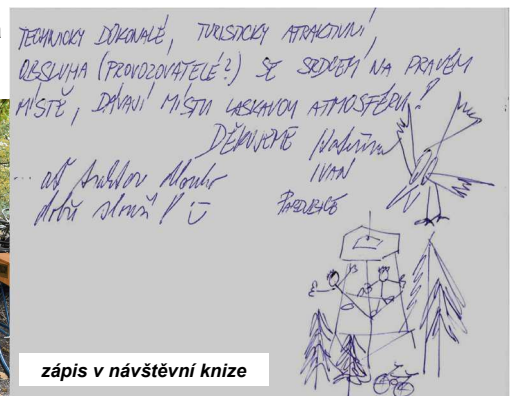 TECHNICKY DOKONALÉ, TURISTICKY ATRAKTIVNÍ,
OBSLUHA (PROVOZOVATELÉ?) SE SRDCEM NA PRAVÉM
MÍSTĚ, DÁVAJÍ MÍSTU LASKAVOU ATMOSFÉRU!
DĚKUJEME Kateřina
IVAN
... ať traktor dlouho
PARDUBICE
dobře slouží!
zápis v návštěvní knize